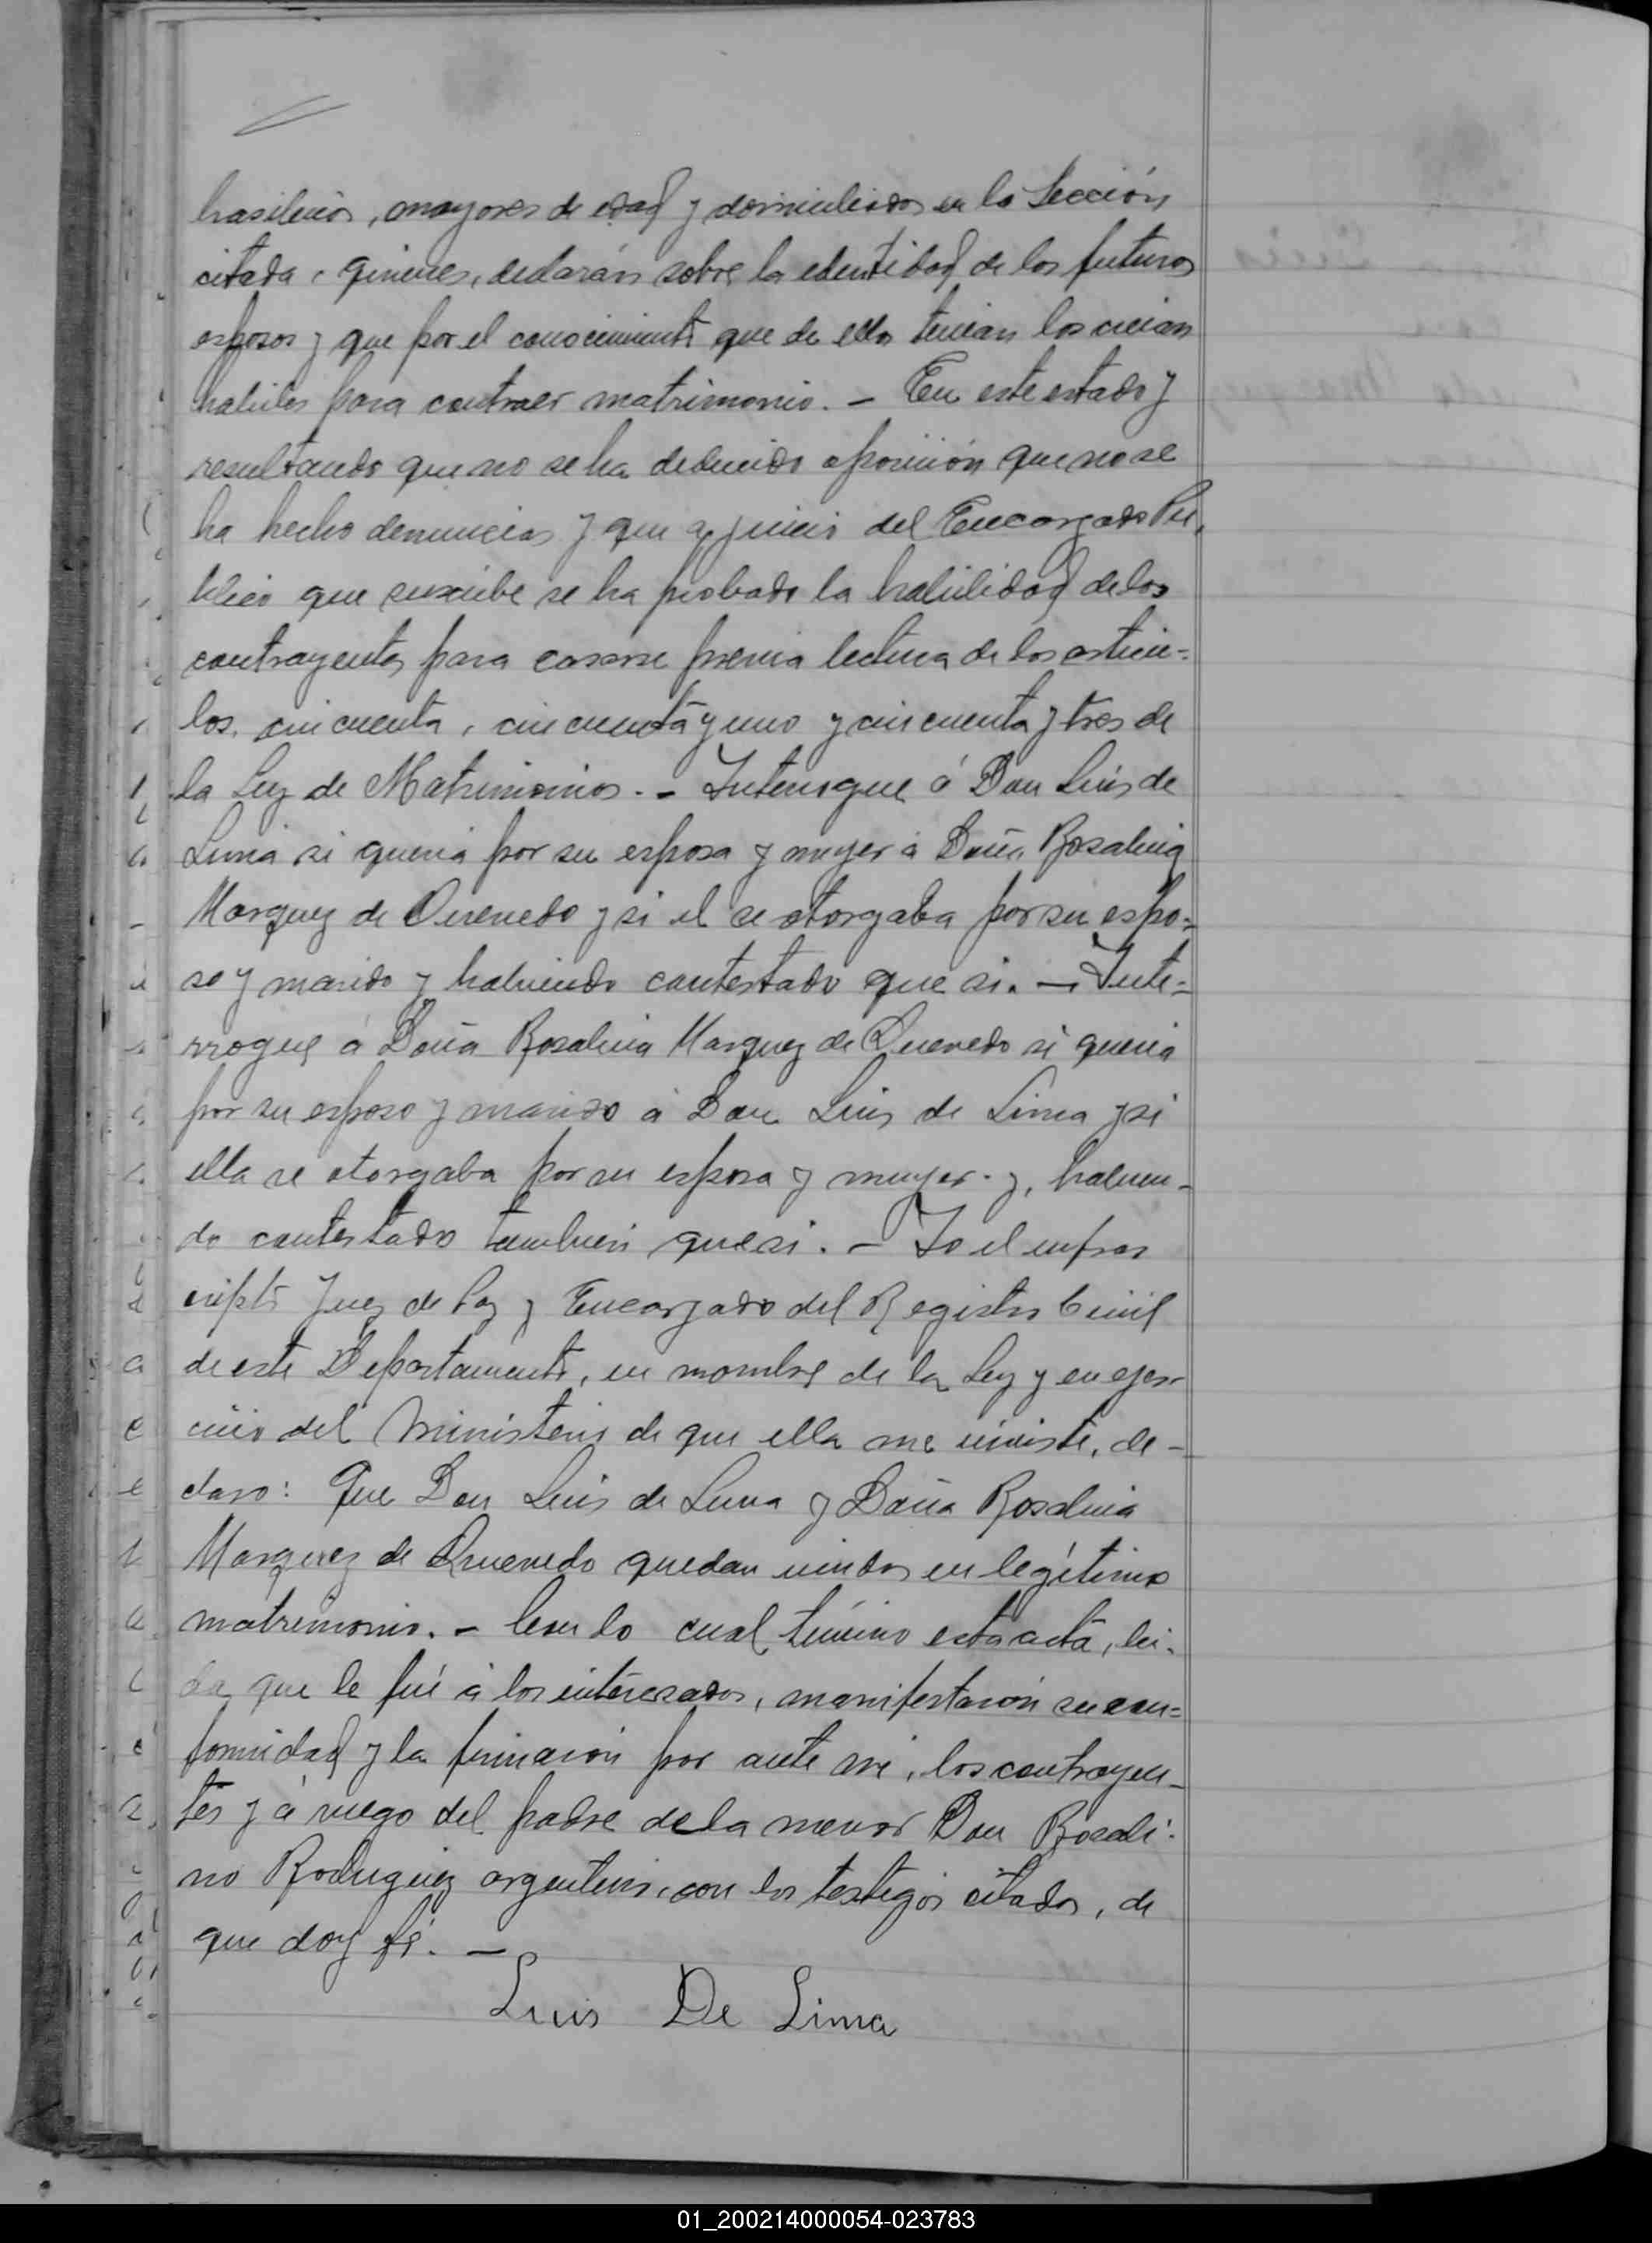 brasileños, mayores de edad y domiciliados en la Sección
citada, quienes, declarán sobre la edentidad de los futuros
esposos y que por el conocimiento que de ellos tenian los creian
habiles para contraer matrimonio. – En este estado y
resultando que no se ha deducido oposición que no se
ha hecho denuncias y que a juicio del Encargado Pu,
blico que suscribe se ha probado la habilidad de los
contrayentes para casarse previa lectura de los artícu=
los, cincuenta, cincuenta y uno y cincuenta y tres de
la Ley de Matrimonios. – Interrogue á Don Luis de
Lima si queria por su esposa y muger á Doña Rosalina
Marquez de Quevedo y si el se otorgaba por su espo=
so y marido y habiendo contestado que si. – Inte=
rrogue á Doña Rosalina Marquez de Quevedo si queria
por su esposo y marido á Don Luis de Lima y si
ella se otorgaba por su esposa y muger. y, habien-
do contestado tambien que si. – Yo el infras
cripto Juez de Paz y Encargado del Registro Civil
de este Departamento, en nombre de la Ley y en ejer-
cicio del Ministerio de que ella me inviste, de-
claro: Que Don Luis de Lima y Doña Rosalina
Marquez de Quevedo quedan unidos en legítimo
matrimonio. – Con lo cual término esta acta, lei-
da que le fué á los interesados, manifestarón su con=
formidad y la firmarón por ante mi, los contrayen-
tes y á ruego del padre de la menor Don Rosali-
no Rodriguez argentino, con los testigos citados, de
que doy fé. –
Luis De Lima
01_200214000054-023783